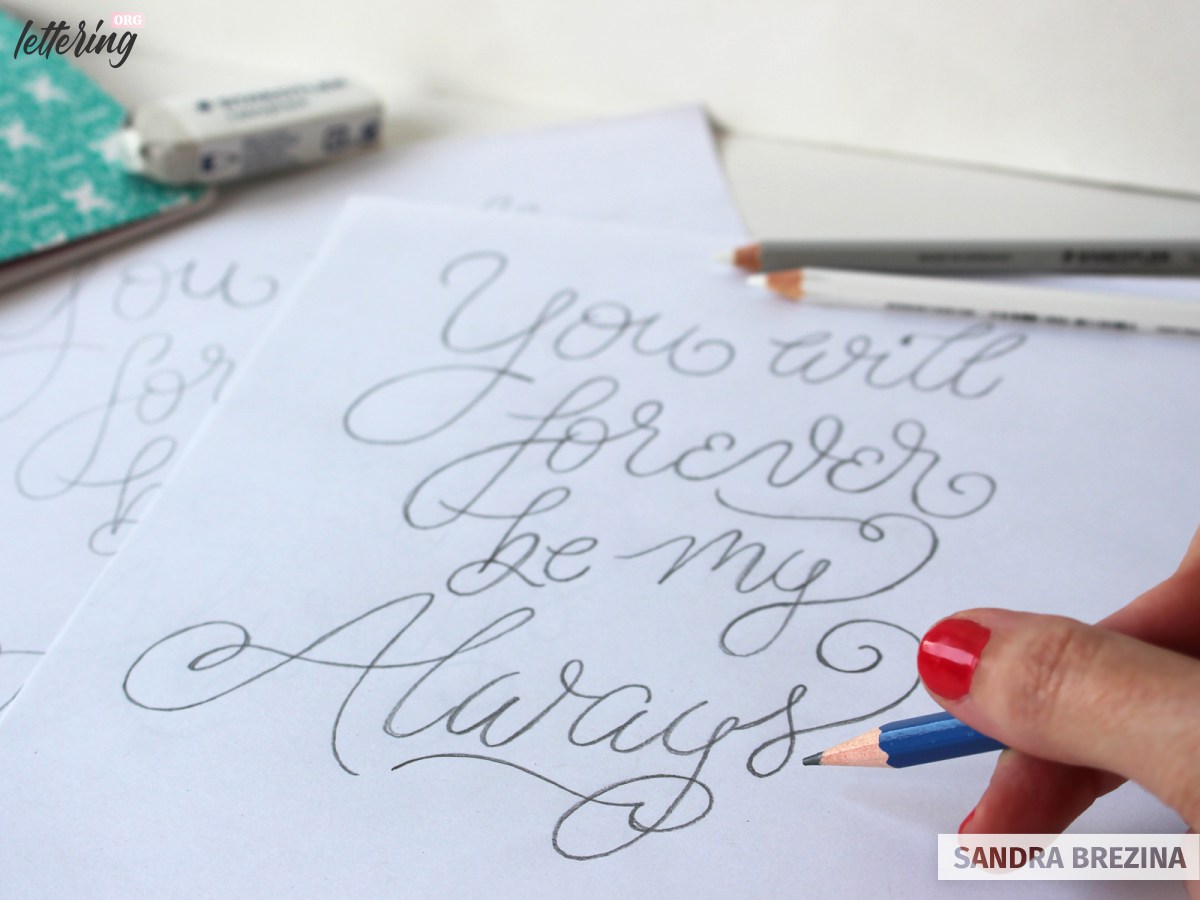 lettering
ORG
STAEDTLER
You
for
You will
forever
be my
Always
SANDRA BREZINA